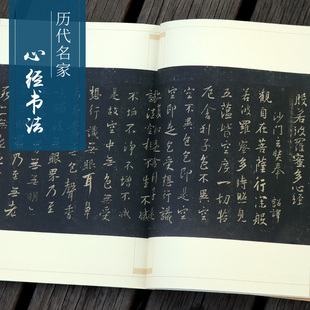 历代名家
心经书法
般若波羅蜜多心經
沙門玄奘奉 詔譯
觀自在菩薩行深般
若波羅蜜多時照見
五蘊皆空度一切苦
厄舍利子色不異空
空不異色色即是空
空即是色受想行識
諸法空相不生不滅
不垢不淨不增不減
是故空中無色無受
想行識無眼耳鼻
色聲香
眼界乃至
無無明
乃至無老